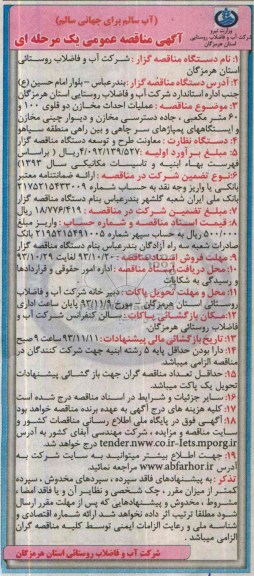 (آب سالم برای جهانی سالم)
آگهی مناقصه عمومی یک مرحله ای
وزارت نیرو
شرکت آب و فاضلاب روستایی
استان هرمزگان
۱: نام دستگاه مناقصه گزار : شرکت آب و فاضلاب روستائی
استان هرمزگان
۲: آدرس دستگاه مناقصه گزار : بندرعباس - بلوار امام حسین (ع)
جنب اداره استاندارد شرکت آب و فاضلاب روستایی استان هرمزگان
۳: موضوع مناقصه : عملیات احداث مخازن دو قلوی ۱۰۰ و
۶۰ متر مکعبی ، جاده دسترسی مخازن و دیوار چینی مخازن
و ایستگاههای پمپاژهای سر چاهی و بین راهی منطقه سیاهو
۴: دستگاه نظارت : معاونت طرح و توسعه دستگاه مناقصه گزار
۵: مبلغ برآورد اولیه : ۴/۰۹۲/۱۳۹/۵۲۷ ریال ( براساس
فهرست بهاء ابنیه و تاسیسات مکانیکی سال ۱۳۹۳)
۶: نوع تضمین شرکت در مناقصه : ارائه ضمانتنامه معتبر
بانکی یا واریز وجه نقد به حساب شماره ۲۱۷۵۲۱۵۴۳۳۰۰۹
بانک ملی ایران شعبه گلشهر بندرعباس بنام دستگاه مناقصه گزار
۷: مبلغ تضمین شرکت در مناقصه : ۱۸/۷۷۶/۴۱۹ ریال
۸: قیمت اسناد مناقصه و شماره حساب : واریز مبلغ
۵۰۰/۰۰۰ ریال به حساب سپهر شماره ۲۱۹۵۲۱۵۴۹۱۰۰۵ بانک
صادرات شعبه سه راه آزادگان بندرعباس بنام دستگاه مناقصه گزار
۹: مهلت فروش اسناد مناقصه : ۹۳/۱۰/۲۰ لغایت ۹۳/۱۰/۲۹
۱۰: محل دریافت اسناد مناقصه : اداره امور حقوقی و قراردادها
و رسیدگی به شکایات
۱۱: محل و مهلت تحویل پاکات : دبیر خانه شرکت آب و فاضلاب
روستائی استان هرمزگان - مورخ ۹۳/۱۱/۹ پایان ساعت اداری
۱۲: مکان بازگشائی پاکات : سالن کنفرانس شرکت آب و
فاضلاب روستائی هرمزگان
۱۳: تاریخ بازگشائی مالی پیشنهادات : ۹۳/۱۱/۱۱ ساعت ۹ صبح
۱۴: دارا بودن حداقل پایه ۵ رشته ابنیه جهت شرکت کنندگان در
مناقصه الزامی میباشد.
۱۵: حداقل تعداد مناقصه گران جهت باز گشائی پیشنهادات
تحویل یک پاکت میباشد.
۱۶: سایر جزئیات و شرایط در اسناد مناقصه درج شده است
۱۷: کلیه هزینه های درج آگهی به عهده برنده مناقصه خواهد بود
۱۸: آگهی فوق در پایگاه ملی اطلاع رسانی مناقصات کشور و
سایت مناقصه و مزایده ، شرکت مهندسی آبفای کشور به آدرس
tender.nww.co.ir-Iets.mporg.ir درج خواهد شد.
۱۹: جهت اطلاع بیشتر میتوانید به سایت شرکت به
آدرس www.abfarhor.ir مراجعه نمائید.
تذکر : به پیشنهادهای فاقد سپرده ، سپردهای مخدوش ، سپرده
کمتر از میزان مقرر ، چک شخصی و نظایر آن و یا فاقد امضاء ،
مشروط ، مخدوش و پیشنهادهایی که پس از مهلت مقرر ارسال
شود مطلقا ترتیب اثر داده نخواهد شد ارائه شماره اقتصادی و
شناسه ملی و رعایت الزامات ایمنی توسط کلیه مناقصه گران
الزامی میباشد .
شرکت آب و فاضلاب روستائی استان هرمزگان